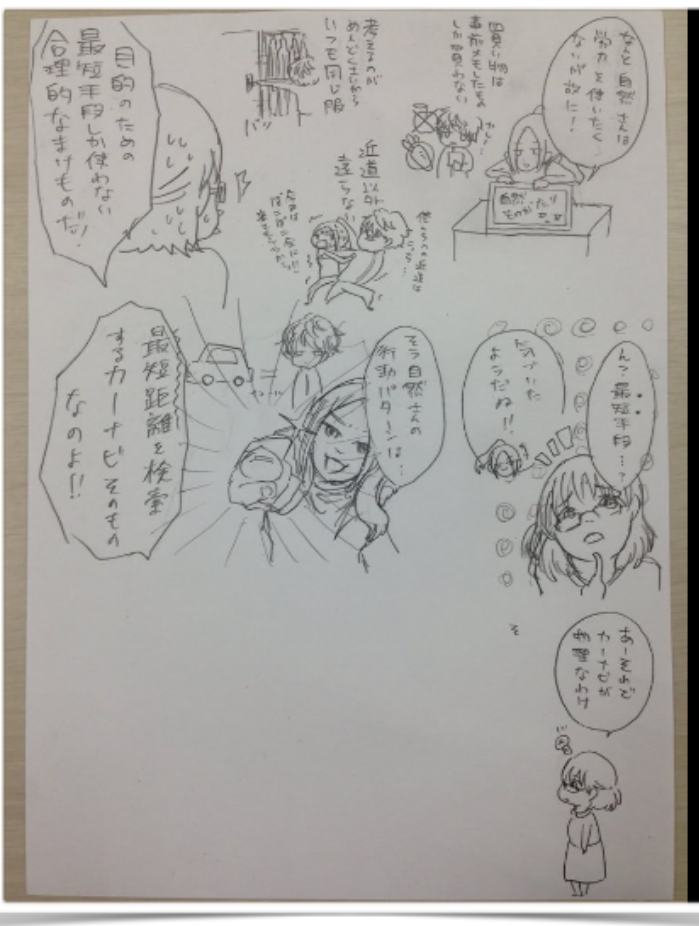 なんと自然さんは
労力を使いたく
ないが故に!
自然
買い物は
事前メモしたもの
しか買わない
考えるのが
めんどくさいから
いつも同じ服
バッ
近道以外
通らない
目的のための
最短手段しか使わない
合理的ななまけものだ!
ん?最短手段…?
気づいた
ようだね!!
そう自然さんの
行動パターンは…
最短距離を検索
するカーナビそのもの
なのよ!!
あーそれで
カーナビが
物理なわけ
そ